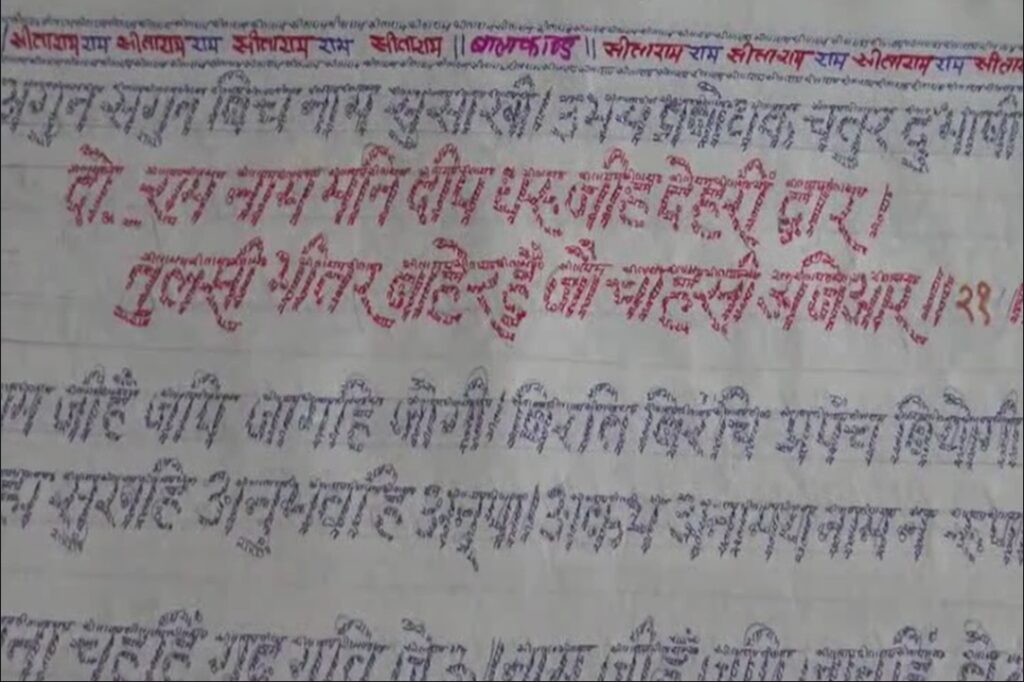 सीताराम राम सीताराम राम सीताराम राम सीताराम || बालकाण्ड || सीताराम राम सीताराम राम सीताराम राम
अगुन सगुन बिच नाम सुसाखी। उभय प्रबोधक चतुर दुभाषी
दो. राम नाम मनि दीप धरु जीह देहरीं द्वार।
तुलसी भीतर बाहेरहुँ जौं चाहसि उजिआर॥ २१ ॥
जीहँ जपि जागहिं जोगी। बिरति बिरंचि प्रपंच बियोगी
सुखहि अनुभवहिं अनूपा। अकथ अनामय नाम न रूपा
चहहिं गूढ़ गति